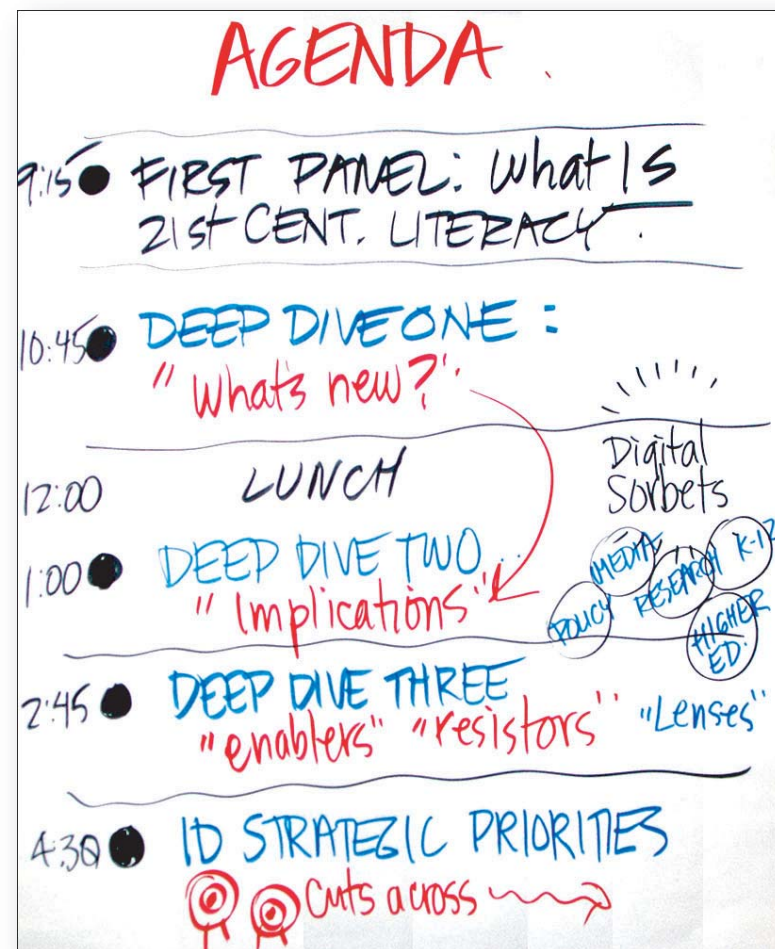 AGENDA
9:15 FIRST PANEL: What IS
21st CENT. LITERACY.
10:45 DEEP DIVE ONE:
"What's new?"
12:00 LUNCH
Digital
Sorbets
1:00 DEEP DIVE TWO
"Implications"
MEDIA
POLICY
RESEARCH
K-12
HIGHER
ED.
2:45 DEEP DIVE THREE
"enablers" "resistors" "Lenses"
4:30 ID STRATEGIC PRIORITIES
Cuts across